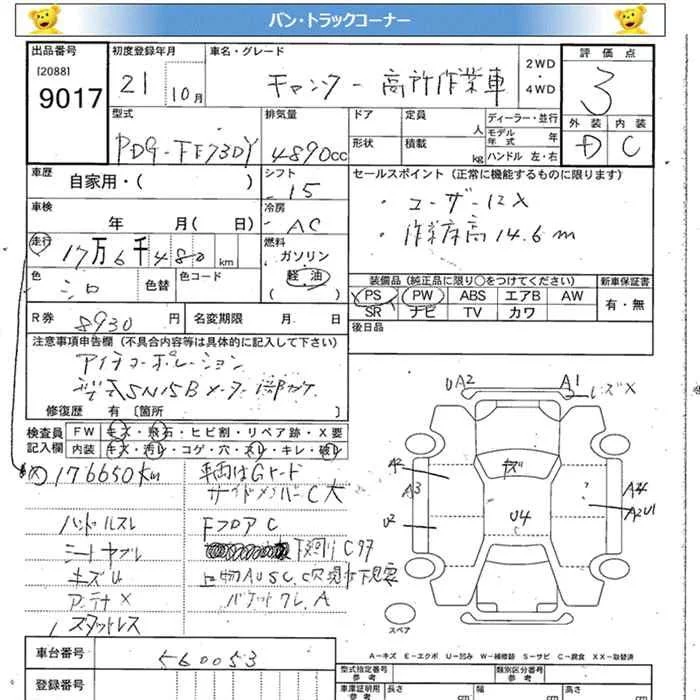 バン・トラックコーナー
出品番号
[2088]
9017
初度登録年月
21 10月
車名・グレード
キャンター 高所作業車
2WD
・
4WD
評価点
3
外装 内装
D C
型式
PDG-FE73DY
排気量
4890cc
ドア
定員
人
形状
積載
kg
ディーラー・並行
モデル年式 年
ハンドル 左・右
車歴
自家用・( )
シフト
15
セールスポイント (正常に機能するものに限ります)
・ユーザー
・作業床高14.6m
車検
年 月( 日)
冷房
AC
走行
17万6千480km
燃料
ガソリン
軽油
( )
色
シロ
色替
色コード
装備品 (純正品に限り○をつけてください)
PS PW ABS エアB AW
SR ナビ TV カワ
新車保証書
有・無
R券 8930円
名変期限 月 日
後日品
注意事項申告欄 (不具合内容等は具体的に記入して下さい)
アイチコーポレーション
SN15B メーター
修復歴 有 [箇所 ]
検査員記入欄
FW キズ・飛石・ヒビ割・リペア跡・X要
内装 キズ・汚レ・コゲ・穴・スレ・キレ・破レ
176650km
車両はGカード
サイドメンバーC大
ハンドルスレ
FフロアC
シートヤブレ
下廻りCサ
キズU
アンテナX
スタットレス
UA2 A1 レンズX
A2
キズ
A3
A4
A2U1
U2
U4
C
スペア
A-キズ E-エクボ U-凹み W-補修跡 S-サビ C-腐食 XX-取替済
車台番号
560053
登録番号
型式指定番号
参考
類別区分番号
参考
車庫証明用
参考
長さ
cm
幅
cm
高さ
cm